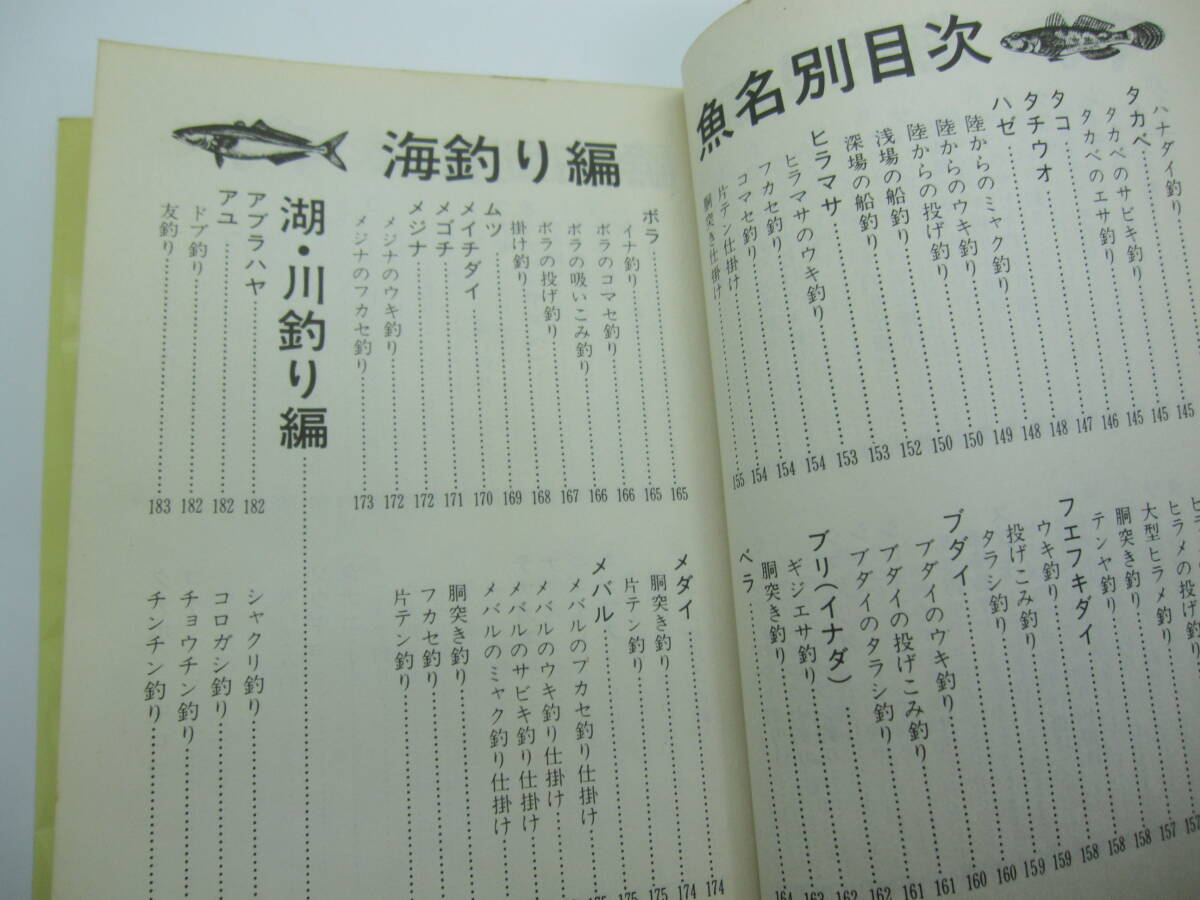 魚名別目次
ハナダイ釣り……145
タカベ……145
タカベのサビキ釣り……145
タカベのエサ釣り……146
タコ……147
タチウオ……148
ハゼ……148
陸からのミャク釣り……149
陸からのウキ釣り……150
陸からの投げ釣り……150
浅場の船釣り……152
深場の船釣り……153
ヒラマサ……153
ヒラマサのウキ釣り……154
フカセ釣り……154
コマセ釣り……154
片テン仕掛け……155
胴突き仕掛け
ヒラメの投げ釣り
大型ヒラメ釣り……157
胴突き釣り……157
テンヤ釣り……158
フエフキダイ……158
ウキ釣り……158
投げこみ釣り……159
タラシ釣り……159
ブダイ……160
ブダイのウキ釣り……160
ブダイの投げこみ釣り……161
ブダイのタラシ釣り……161
ブリ(イナダ)……162
ギジエサ釣り……162
胴突き釣り……163
ベラ……164
海釣り編
ボラ……165
イナ釣り……165
ボラのコマセ釣り……166
ボラの吸いこみ釣り……166
ボラの投げ釣り……167
掛け釣り……168
ムツ……169
メイチダイ……170
メゴチ……171
メジナ……172
メジナのウキ釣り……172
メジナのフカセ釣り……173
メダイ……174
胴突き釣り……174
片テン釣り……175
メバル……175
メバルのフカセ釣り仕掛け……175
メバルのウキ釣り仕掛け
メバルのサビキ釣り仕掛け
メバルのミャク釣り仕掛け
胴突き釣り
フカセ釣り
片テン釣り
湖・川釣り編
アブラハヤ……182
アユ……182
ドブ釣り……182
友釣り……183
シャクリ釣り
コロガシ釣り
チョウチン釣り
チンチン釣り